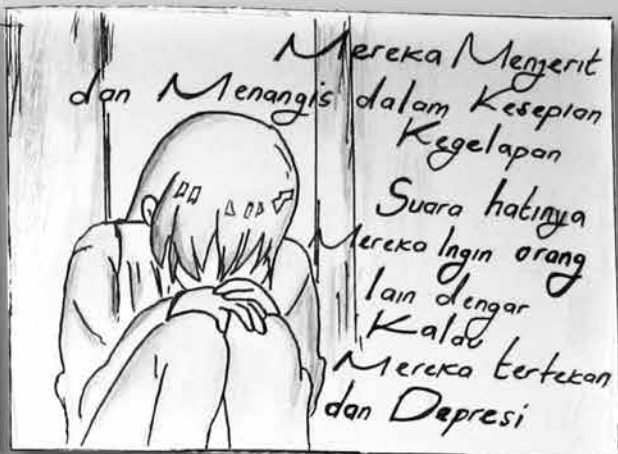 Mereka Menjerit
dan Menangis dalam Kesepian
Kegelapan
Suara hatinya
Mereka Ingin orang
lain dengar
Kalau
Mereka tertekan
dan Depresi